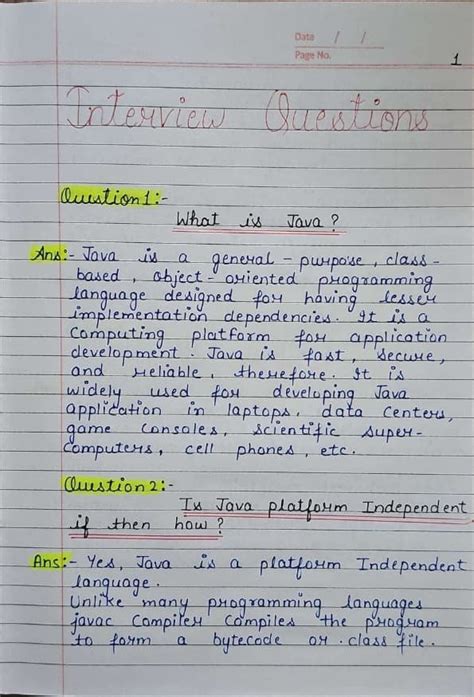 Date / /
Page No.
1
Interview Questions
Question 1:-
What is Java?
Ans:- Java is a general - purpose, class -
based, object - oriented programming
language designed for having lesser
implementation dependencies. It is a
computing platform for application
development. Java is fast, secure,
and reliable, therefore. It is
widely used for developing Java
application in laptops, data centers,
game consoles, scientific super-
computers, cell phones, etc.
Question 2:-
Is Java platform Independent
if then how?
Ans:- Yes, Java is a platform Independent
language.
Unlike many programming languages
javac compiler compiles the program
to form a bytecode or .class file.